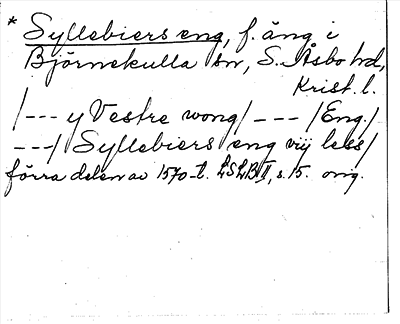 * Syllebiers eng, f. äng i
Björnekulla sn, S. Åsbo hd,
Krist. l.
/--- y Vestre wong/ --- /Eng./
---/ Syllebiers eng vij less/
förra delen av 1570-t. LSLB II, s. 15. orig.